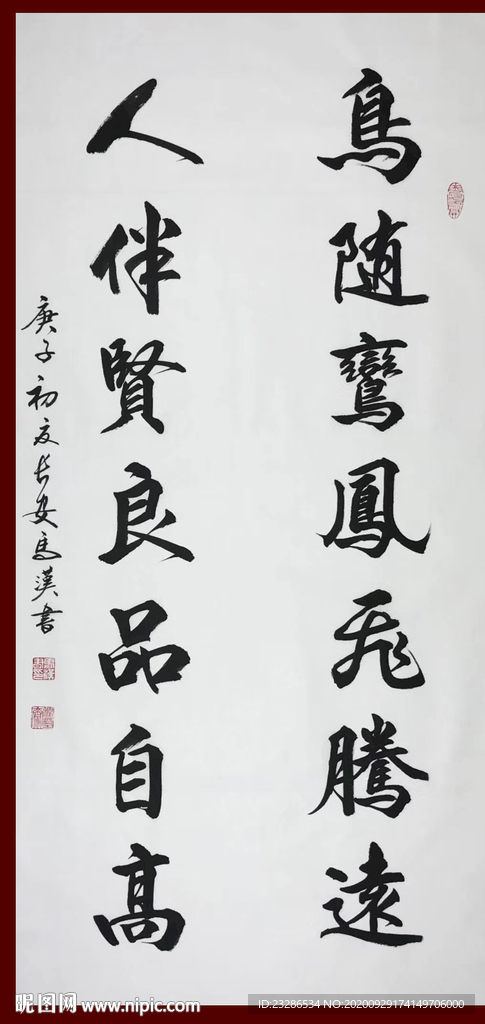 鳥随鸞鳳飛騰遠
人伴賢良品自高
庚子初夏長安馬漢書
昵图网 www.nipic.com
ID:23286534 NO:20200929174149706000